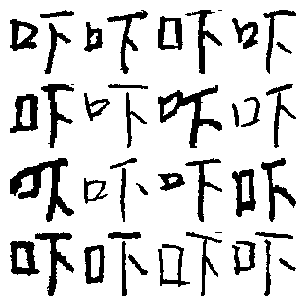 吓吓吓吓
吓吓吓吓
吓吓吓吓
吓吓吓吓